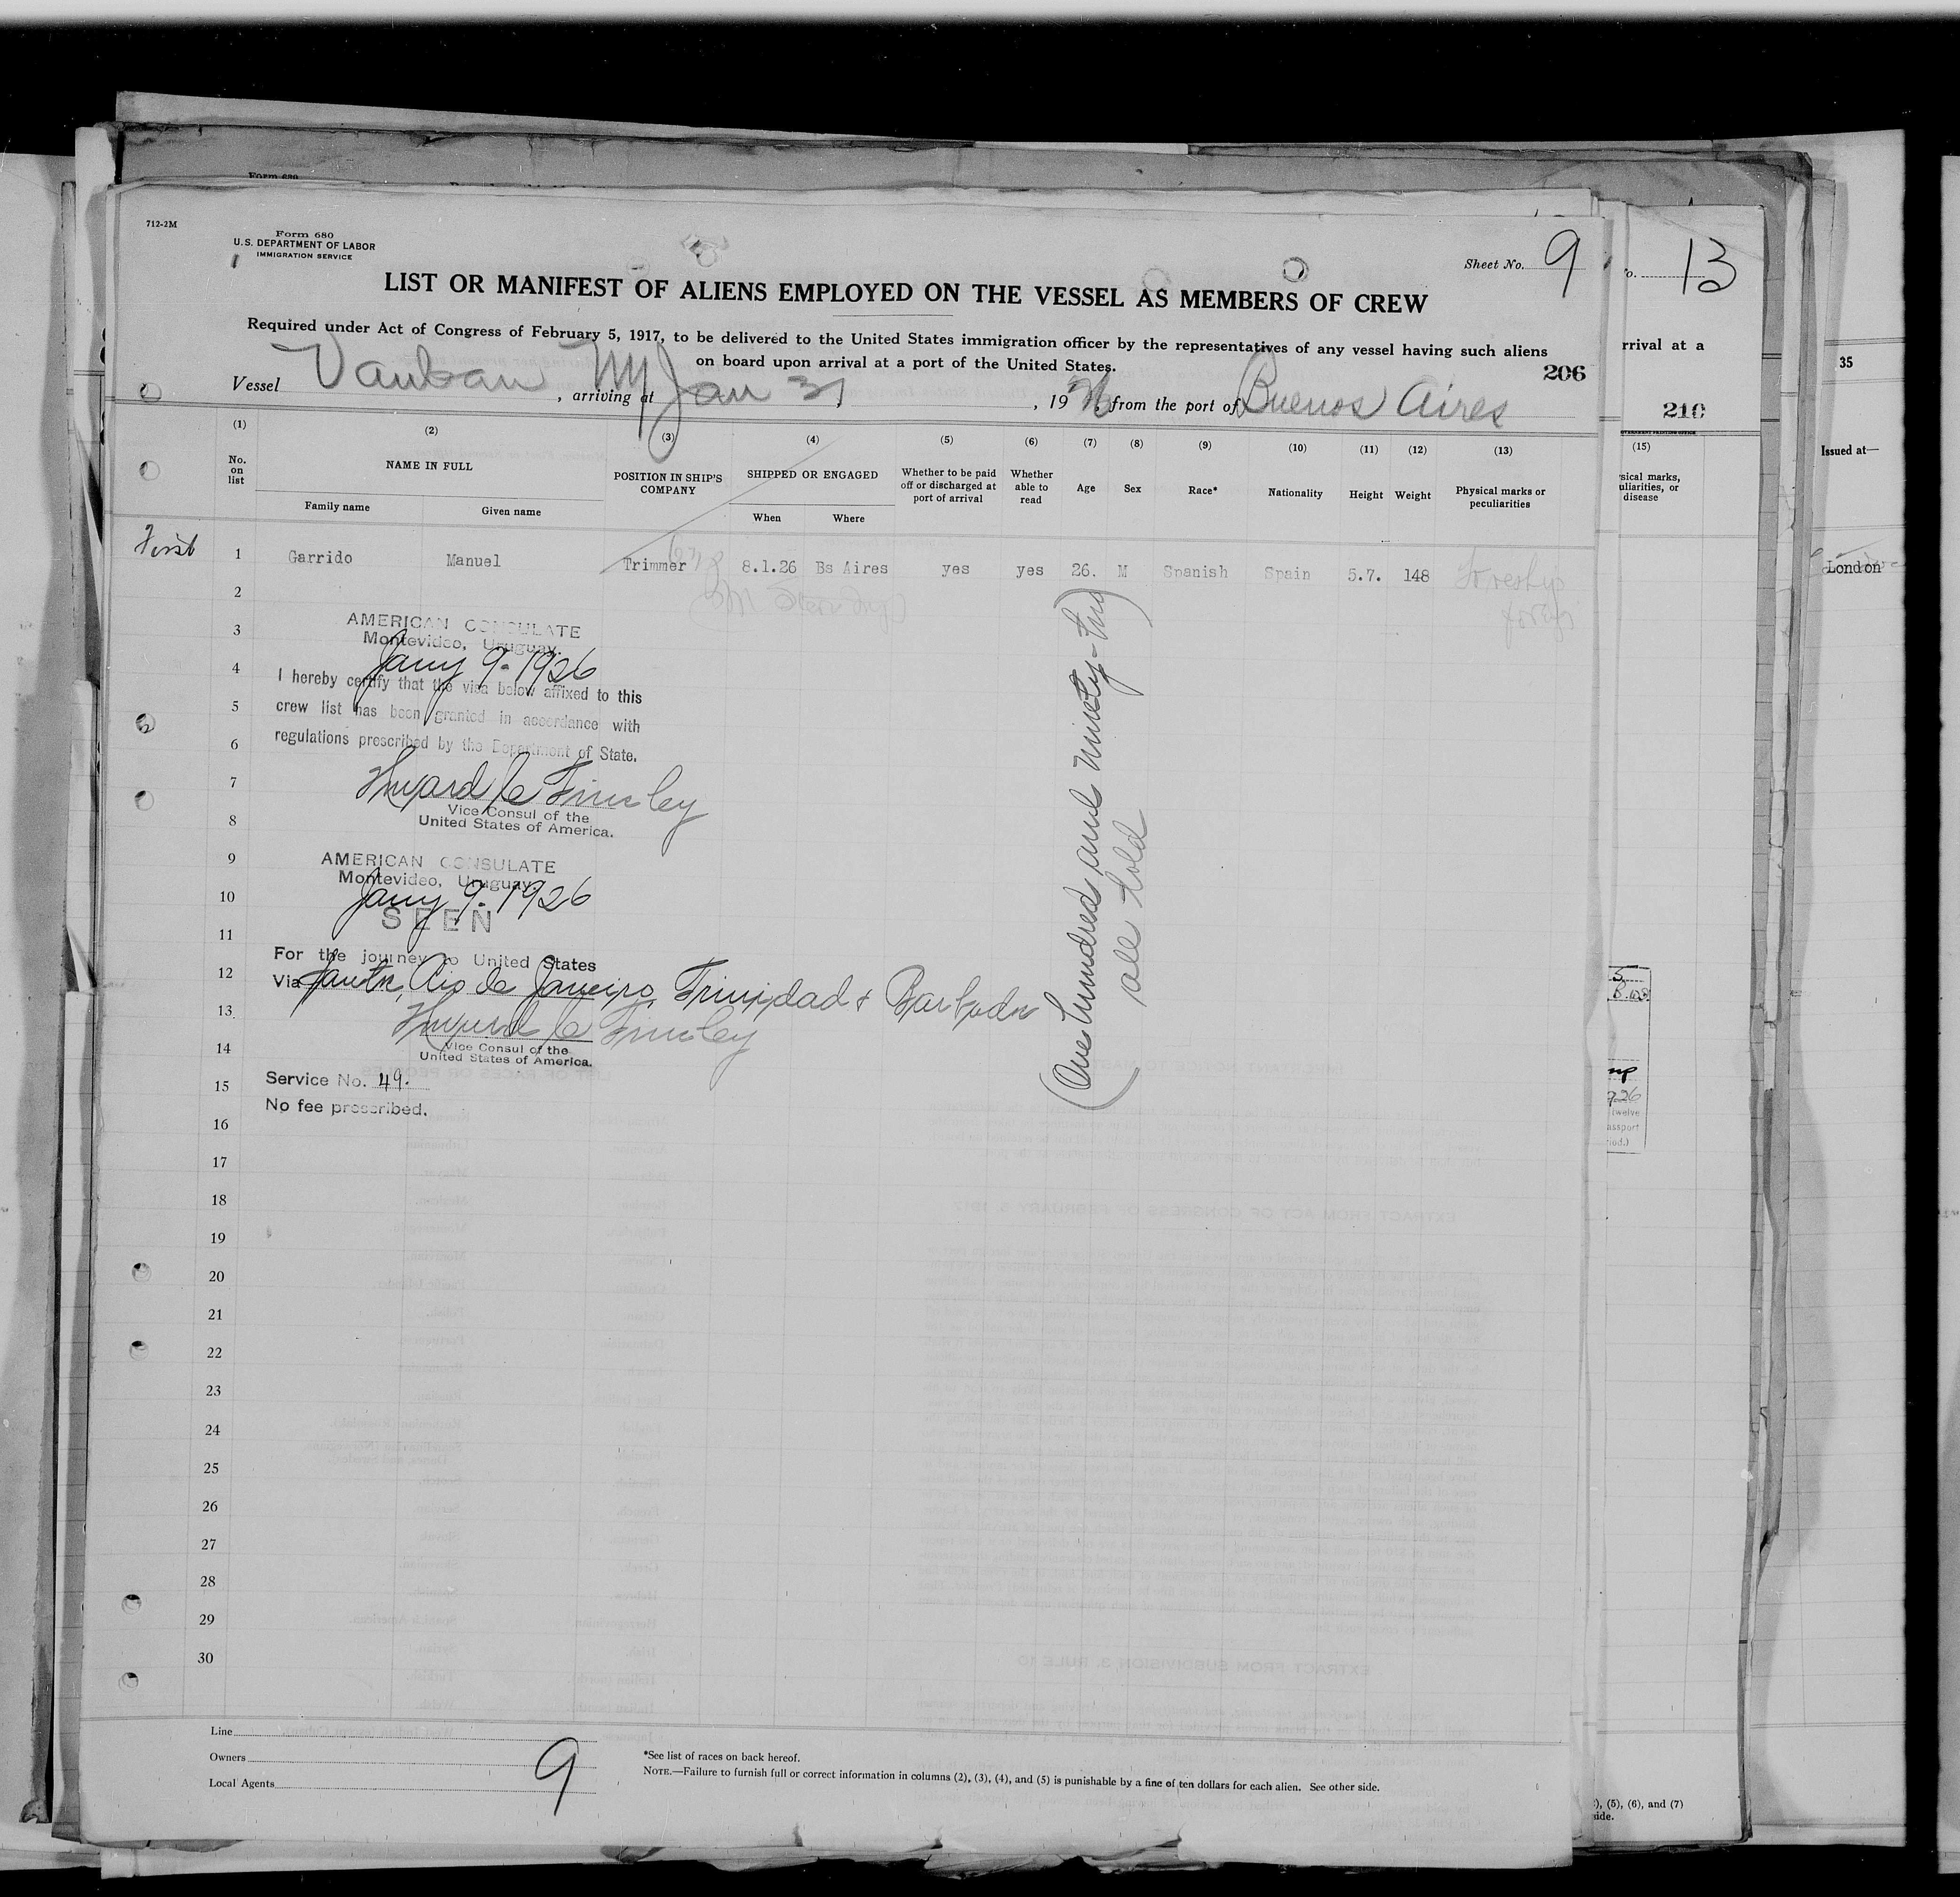 Form 680
712-2M
Form 680
U.S. DEPARTMENT OF LABOR
IMMIGRATION SERVICE
Sheet No. 9
LIST OR MANIFEST OF ALIENS EMPLOYED ON THE VESSEL AS MEMBERS OF CREW
Required under Act of Congress of February 5, 1917, to be delivered to the United States immigration officer by the representatives of any vessel having such aliens
on board upon arrival at a port of the United States.
206
Vessel Vauban, arriving at NY Jan 31, 1926, from the port of Buenos Aires
(1) (2) (3) (4) (5) (6) (7) (8) (9) (10) (11) (12) (13)
No. on list NAME IN FULL POSITION IN SHIP'S COMPANY SHIPPED OR ENGAGED Whether to be paid off or discharged at port of arrival Whether able to read Age Sex Race* Nationality Height Weight Physical marks or peculiarities
Family name Given name When Where
First 1 Garrido Manuel Trimmer 8.1.26 Bs Aires yes yes 26. M Spanish Spain 5.7. 148
2
3 AMERICAN CONSULATE
Montevideo, Uruguay.
Jany 9. 1926
4 I hereby certify that the visa below affixed to this
5 crew list has been granted in accordance with
6 regulations prescribed by the Department of State.
7 Howard C Tinsley
Vice Consul of the
8 United States of America.
9 AMERICAN CONSULATE
Montevideo, Uruguay.
10 Jany 9. 1926
SEEN
11
For the journey to United States
12 Via Santos, Rio de Janeiro, Trinidad & Barbados
13 Howard C Tinsley
Vice Consul of the
14 United States of America.
15 Service No. 49.
No fee prescribed.
16
17
18
19
20
21
22
23
24
25
26
27
28
29
30
(One hundred and ninety-two)
all told
Line
Owners
Local Agents
9
*See list of races on back hereof.
NOTE.—Failure to furnish full or correct information in columns (2), (3), (4), and (5) is punishable by a fine of ten dollars for each alien. See other side.
o. 13
rrival at a
210
(15)
sical marks,
uliarities, or
disease
), (5), (6), and (7)
side.
35
Issued at—
London